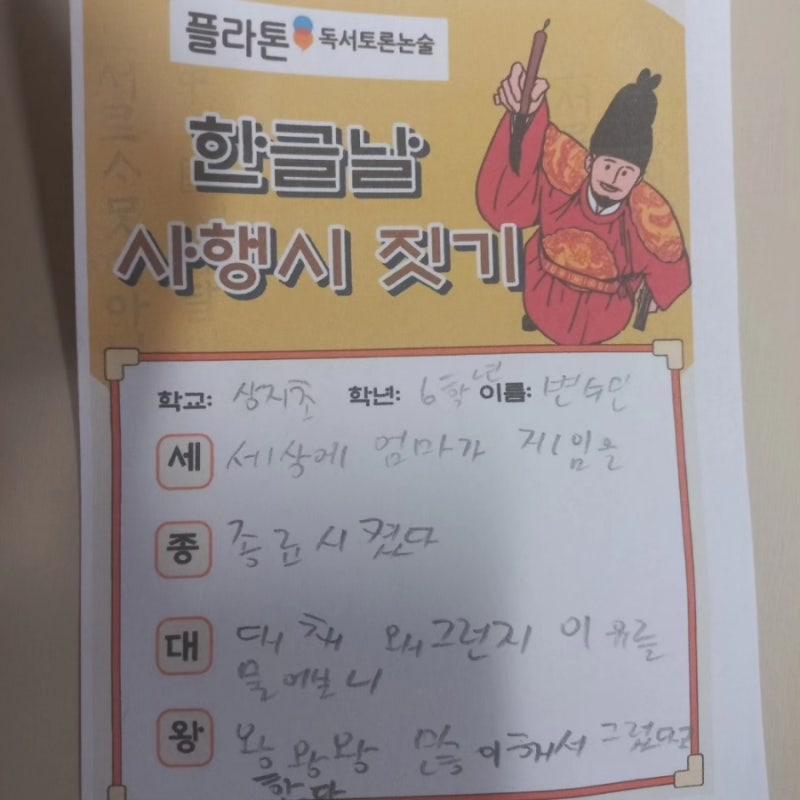 플라톤 독서토론논술
한글날
사행시 짓기
학교: 상지초 학년: 6학년 이름: 변수민
세 세상에 엄마가 게임을
종 종료시켰다
대 대체 왜그런지 이유를
물어보니
왕 왕왕왕 많이해서 그렇다고
한다